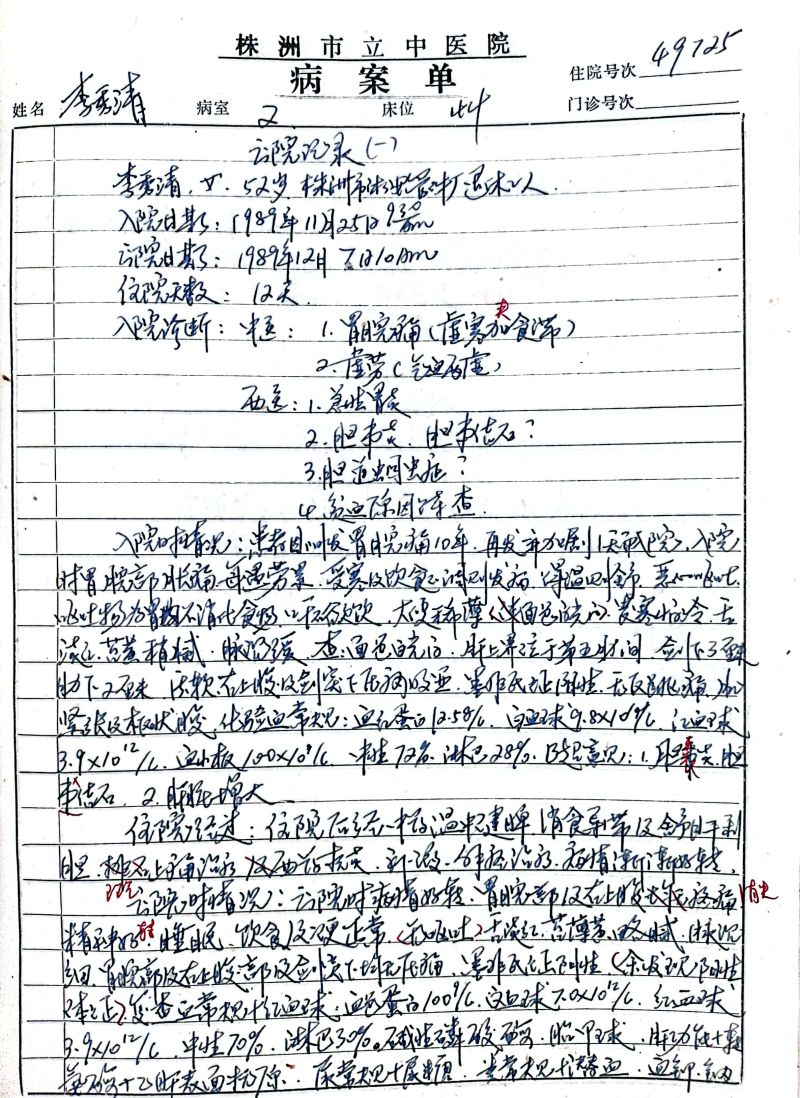 株洲市立中医院
病案单
住院号次 49725
姓名 李秀清 病室 2 床位 44 门诊号次
出院记录(一)
李秀清,女,52岁,株洲市 退休工人
入院日期:1989年11月25日9 am
出院日期:1989年12月7日10am
住院天数:12天
入院诊断:中医:1.胃脘痛(虚寒夹食滞)
2.虚劳(气血两虚)
西医:1.急性胃炎
2.胆囊炎、胆囊结石?
3.胆道蛔虫症?
4.贫血原因待查
入院时情况:患者因间发胃脘痛10年,再发并加剧1天 入院,入院
时胃脘部胀痛,每遇劳累、受寒及饮食 则发病,得温则舒,恶心呕吐,
呕吐物为胃内不消化食物, 大便稀薄, 面色㿠白,畏寒怕冷,舌
淡红,苔黄稍腻,脉沉缓,查:面色㿠白,肝上界位于第五肋间,剑下3
肋下2 ,质软,右上腹及剑突下压痛明显,墨非氏征阳性,无反跳痛,
紧张及板状腹,化验血常规:血红蛋白12.5g%,白血球9.8×10⁹/L,红血球
3.9×10¹²/L,血小板100×10⁹/L,中性72%,淋巴28%,B超意见:1.胆囊炎,胆
囊结石,2.肝脏增大
住院经过:住院后经中药温中健脾,消食导滞及舒肝利
胆, 止痛治疗,及西药抗炎、 治疗,病情渐渐好转,
出院时情况:出院时病情好转,胃脘部及右上腹 疼痛消失
精神好,睡眠、饮食及二便正常,(无呕吐)舌淡红,苔薄黄略腻,脉沉
细,胃脘部及右上腹部及剑突下均无压痛,墨非氏征阴性,(余发现阳性
体征)复查血常规+红血球:血红蛋白100 ,白血球7.0×10 /L,红血球
3.9×10¹²/L,中性70%,淋巴30%。碱性磷酸酶, 肝功能+
+乙肝表面抗原、尿常规+尿糖、粪常规+潜血、血钾